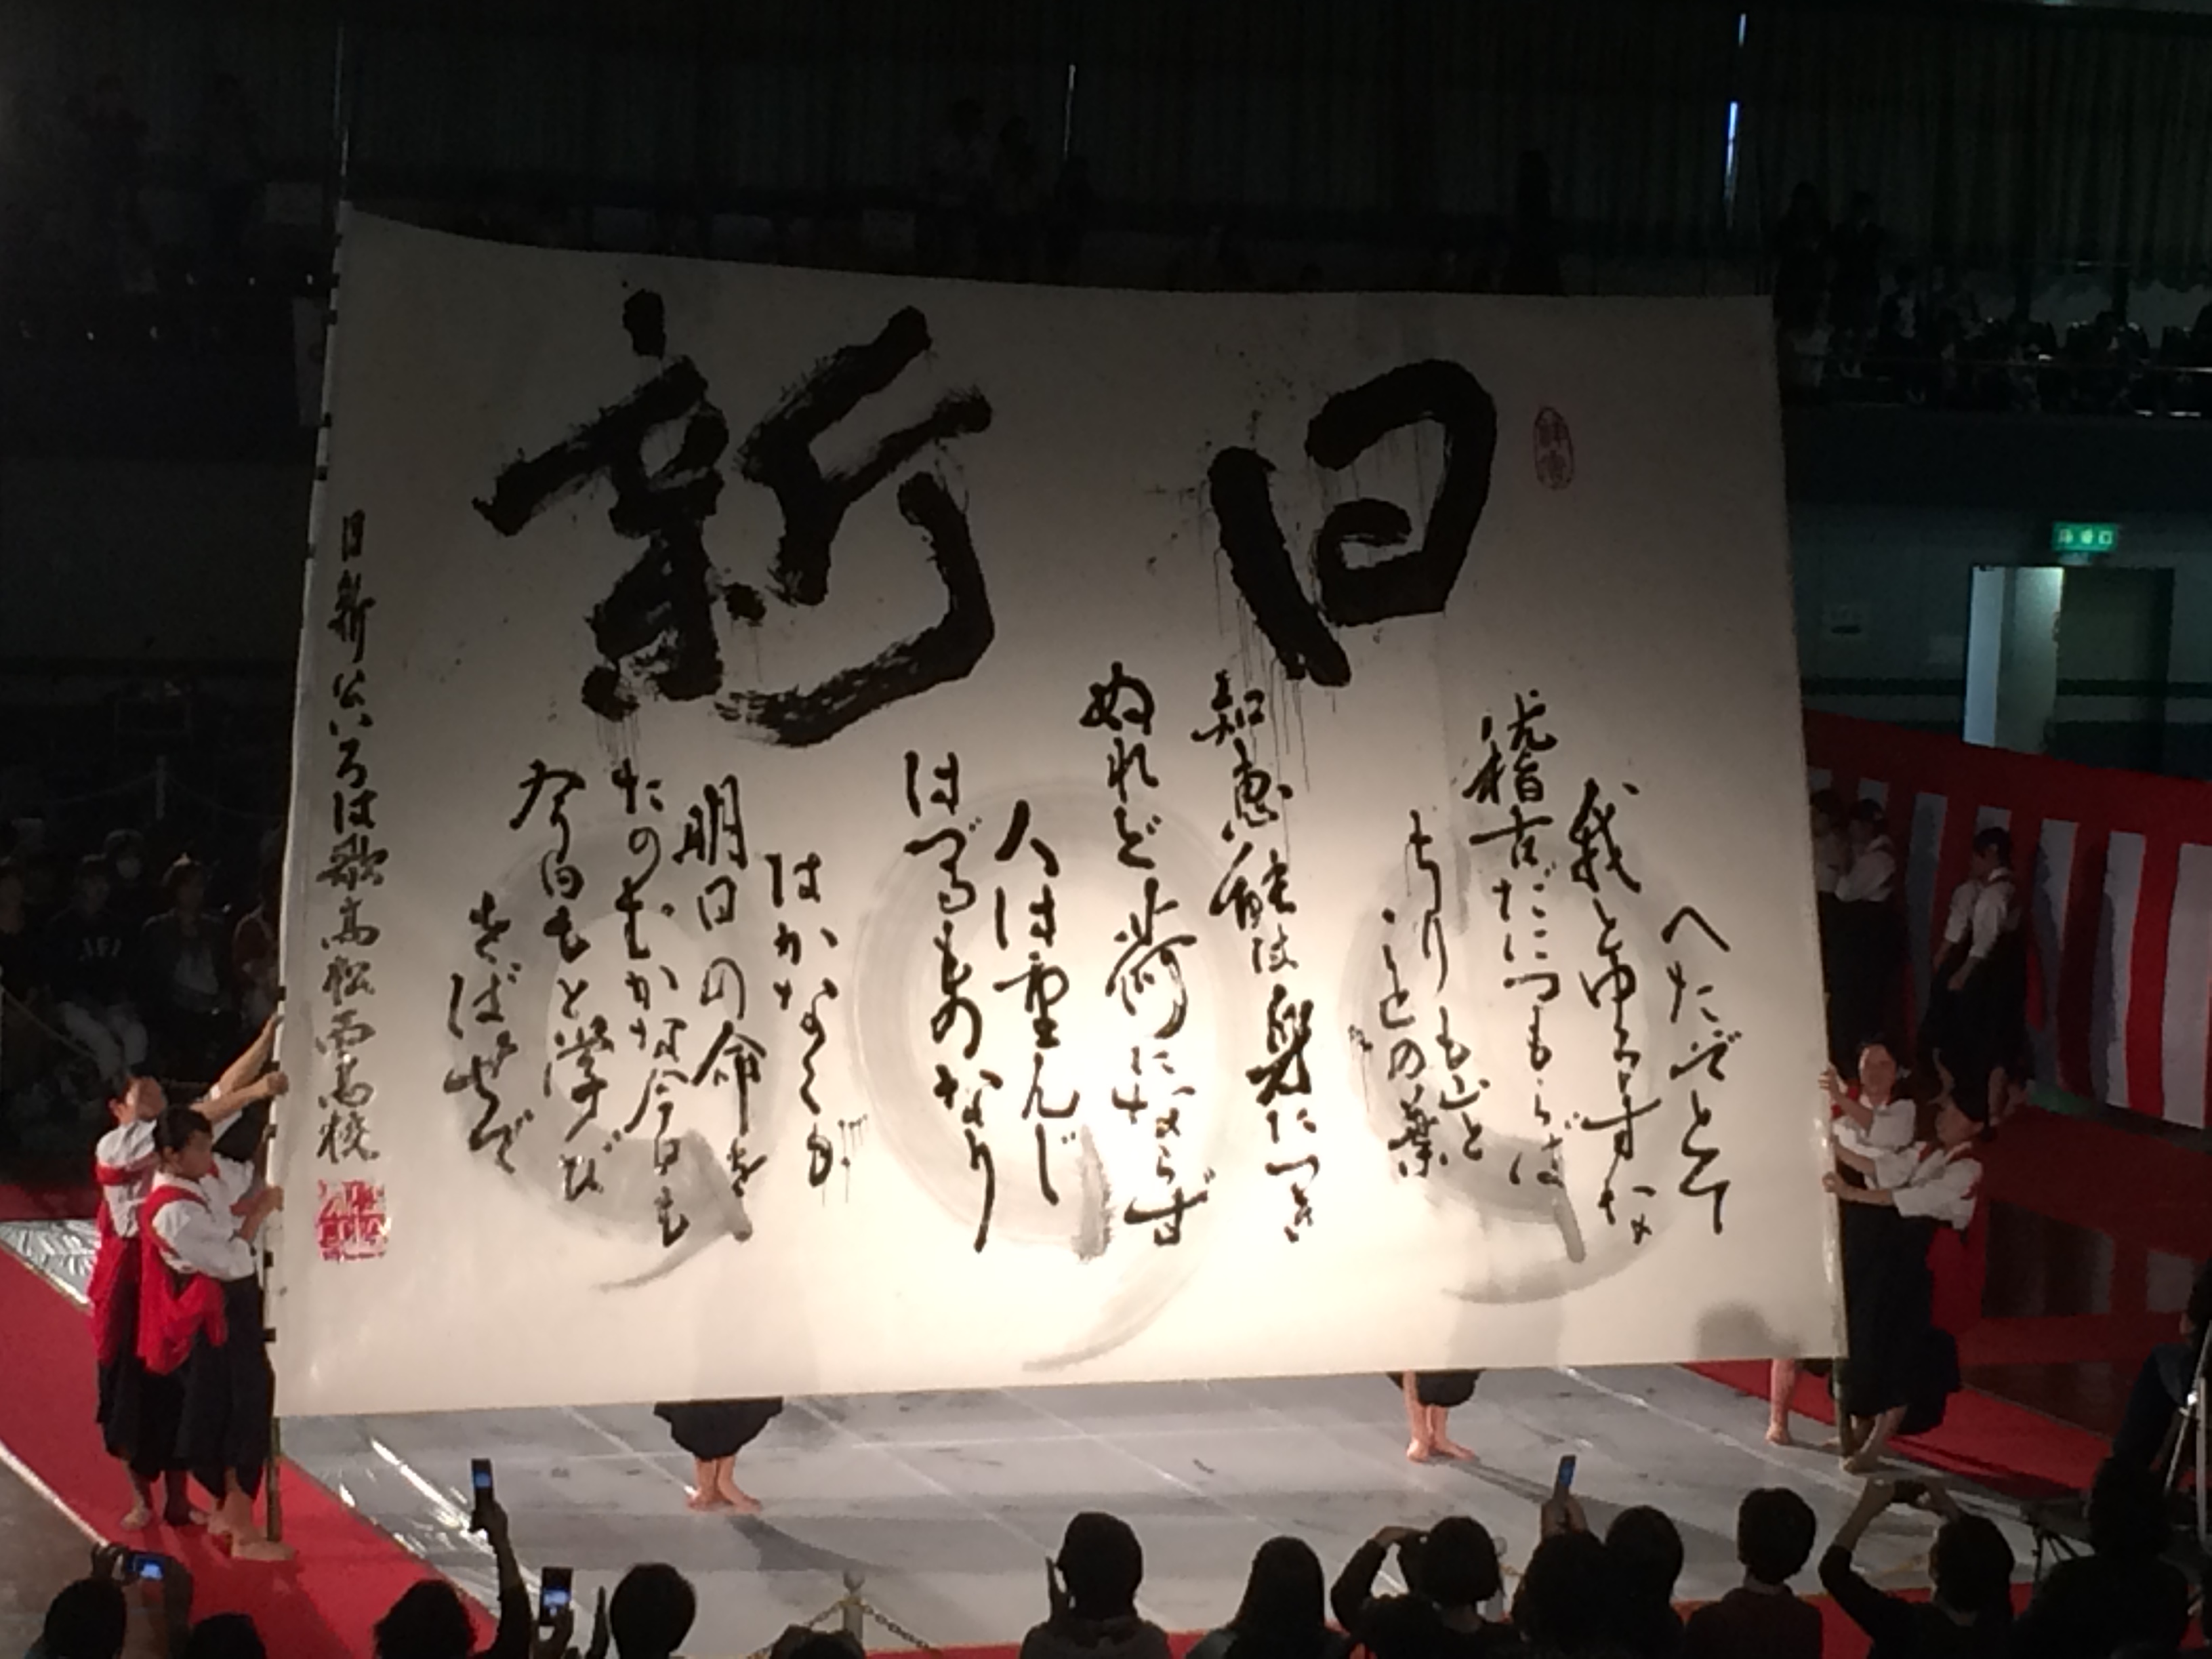 日新
へたぞとて
我とゆるすな
稽古だにつもらば
ちりも山と
ことの葉
知恵能は身につき
ぬれど荷にならず
人は重んじ
はづるものなり
はかなくも
明日の命を
たのむかな今日も
今日もと学び
をばせで
日新公いろは歌高松西高校